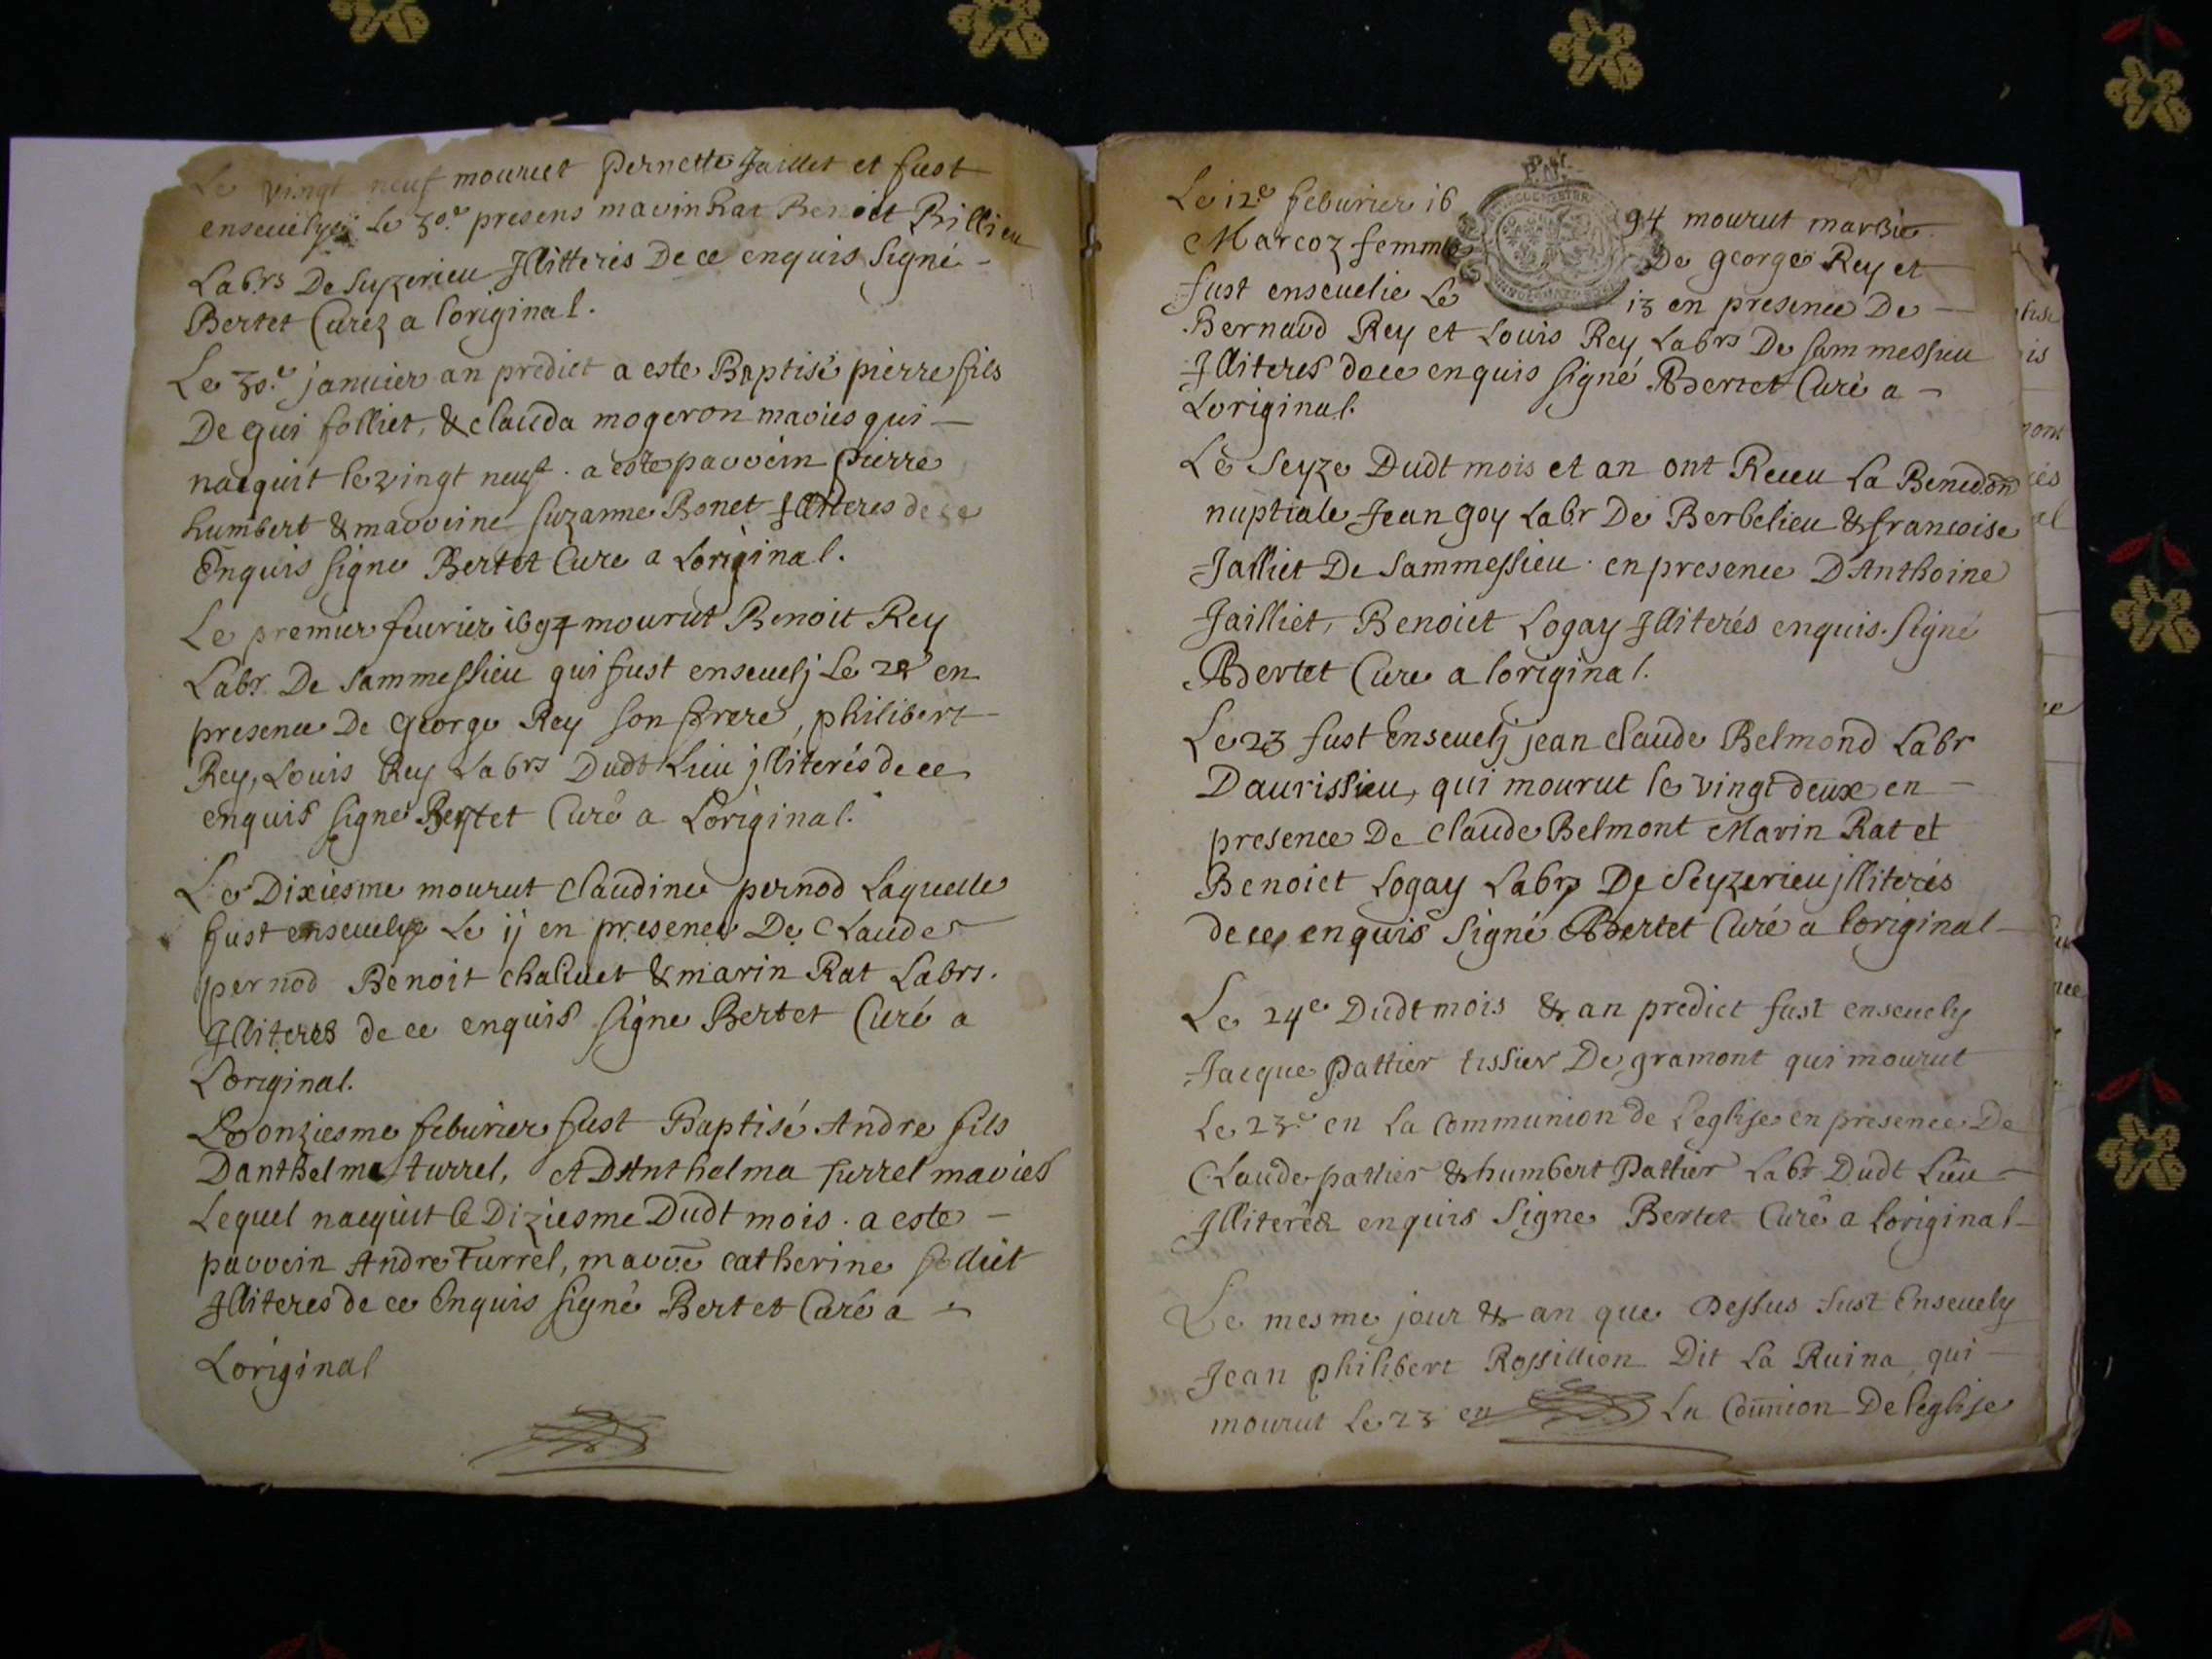 Le vingt neuf mourut Pernette Jaillet et fust
enseuelye Le 30.e presens marin Rat Benoit Billieu
Labrs De Seyzerieu Jllitteres De ce enquis Signé
Bertet Curéz a loriginal.
Le 30.e januier an predict a este Baptisé pierre fils
De gui folliet, & clauda mogeron mariés qui
nacquit le vingt neuf. a este parrein pierre
humbert & marreine suzanne Bonet Jlliteres de ce
Enquis signe Bertet Cure a Loriginal.
Le premier feurier 1694 mourut Benoit Rey
Labr. De Sammessieu qui fust enseuelj Le 2e en
presence De George Rey son frere, philibert
Rey, Louis Rey Labrs Dudt Lieu jlliterés de ce
enquis signe Bertet Curé a Loriginal.
Le Dixiesme mourut Claudine pernod Laquelle
fust enseuelye Le ij en presence De Claude
pernod Benoit chaluet & marin Rat Labrs.
Jlliteres de ce enquis signe Bertet Curé a
Loriginal.
Le onziesme feburier fust Baptisé Andre fils
Danthelme turrel, et DAnthelma turrel mariés
Lequel nacquit le Diziesme Dudt mois. a este
parrein Andre Turrel, marre catherine
Jlliteres de ce Enquis signé Bertet Curé a
Loriginal
Le 12.e feburier 16 94 mourut
Marcoz femme De george Rey et
fust enseuelie Le 13 en presence De
Bernard Rey et Louis Rey Labrs De sammessieu
Jlliteres de ce enquis signé Bertet Curé a
Loriginal.
Le Seyze Dudt mois et an ont Receu La Benedon
nuptiale Jean goy Labr De Berbelieu & francoise
Jalliet De Sammessieu. en presence DAnthoine
Jailliet, Benoict Logay Jlliterés enquis. signé
Bertet Cure a loriginal.
Le 23 fust Enseuelj jean claude Belmond Labr
Daurissieu, qui mourut le vingt deux en
presence De Claude Belmont Marin Rat et
Benoict Logay Labrs De Seyzerieu jlliterés
de ce enquis Signé Bertet Curé a loriginal
Le 24e Dudt mois & an predict fust enseuely
Jacque Pattier tissier De gramont qui mourut
Le 23.e en La Communion de Leglise en presence De
Claude pattier & humbert Pattier Labr Dudt Lieu
Jlliterés enquis Signe Bertet Curé a loriginal
Le mesme jour & an que Dessus fust Enseuely
Jean philibert Rossillion Dit La Ruina qui
mourut Le 23 en La Coūnion De leglise